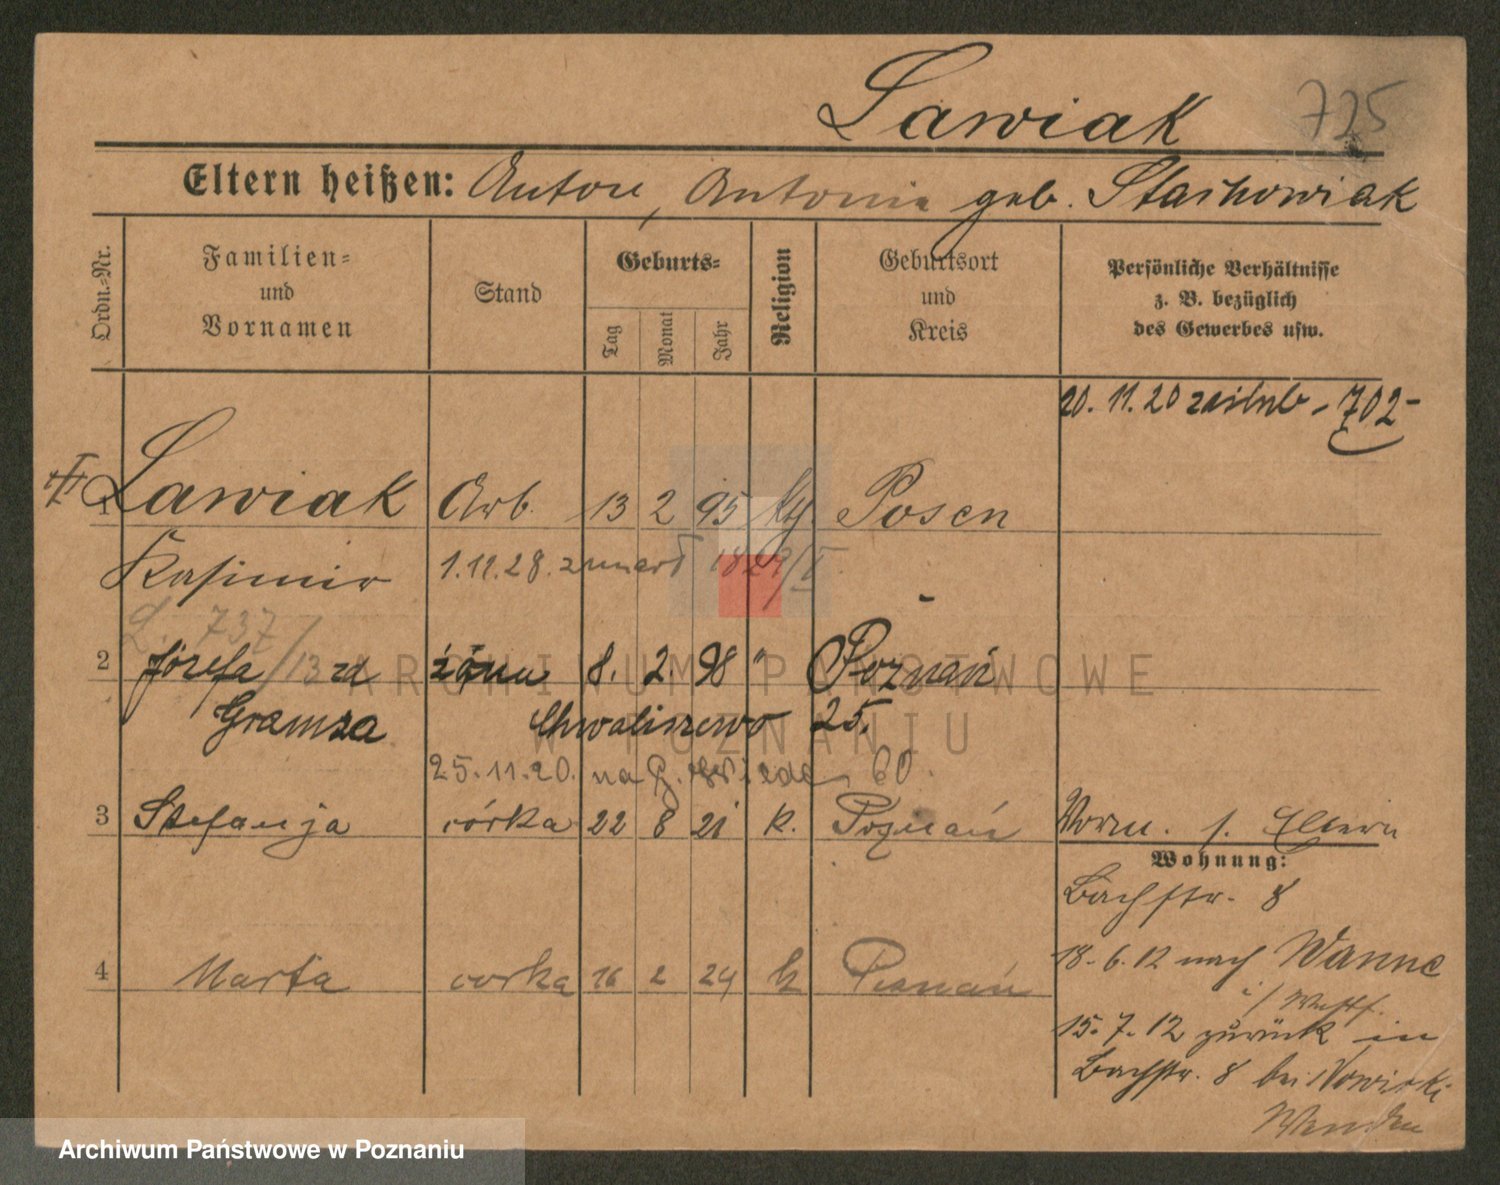 Lawiak 725
Eltern heißen: Anton, Antonie geb. Stachowiak
Ordn.-Nr.
Familien-
und
Vornamen
Stand
Geburts-
Tag
Monat
Jahr
Religion
Geburtsort
und
Kreis
Persönliche Verhältnisse
z. B. bezüglich
des Gewerbes usw.
20. 11. 20 zaślub - 702 -
1 Lawiak Arb. 13 2 95 Posen
Kasimir 1.11.28. zmarł 1829/I
L. 737/13
2 Józefa zd żona 8. 2. 98 " Poznań
Gramza Chwaliszewo 25.
25.11.20. na 60.
3 Stefanja córka 22 8 21 k. Poznań
Vorm. s. Eltern
Wohnung:
Bachstr. 8
4 Marta corka 16 2 24 k Poznań
18. 6. 12 nach Wanne
i/ Westf.
15. 7. 12 zurück in
Bachstr. 8 bei Nowicki
ARCHIWUM PAŃSTWOWE
W POZNANIU
Archiwum Państwowe w Poznaniu